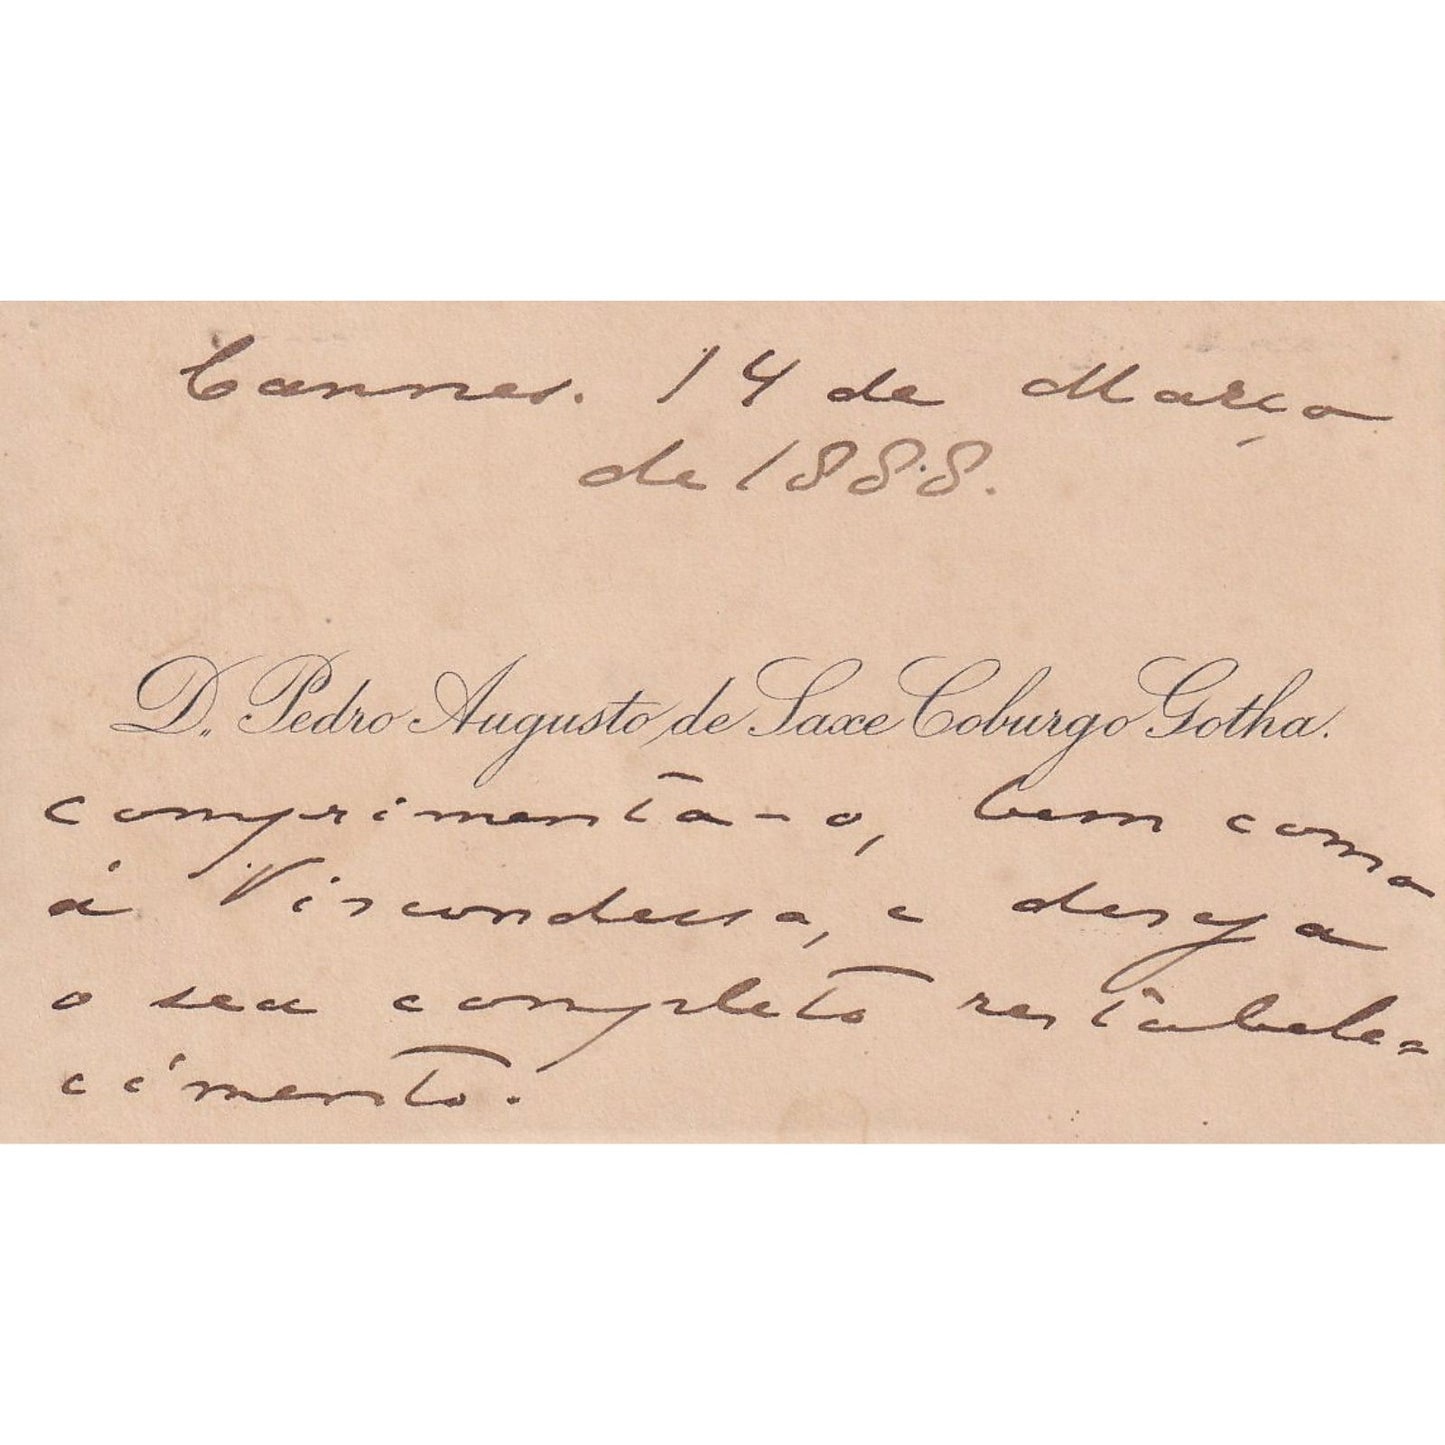 Cannes. 14 de Março
de 1888.
D. Pedro Augusto de Saxe Coburgo Gotha.
comprimenta-o, bem como
á Viscondessa, e deseja
o seu completo restabele=
cimento.